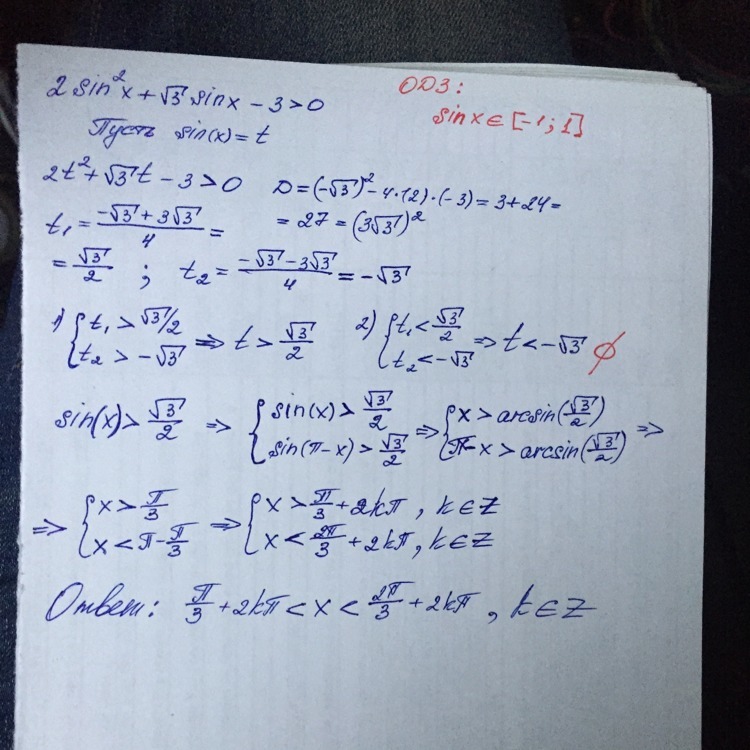 2 sin²x + √3 sinx - 3 > 0
ОДЗ:
sinx ∈ [-1; 1]
Пусть sin(x) = t
2t² + √3 t - 3 > 0 D = (-√3)² - 4·(2)·(-3) = 3 + 24 =
= 27 = (3√3)²
t₁ = (-√3 + 3√3)/4 =
= √3/2 ; t₂ = (-√3 - 3√3)/4 = -√3
1) { t₁ > √3/2 ; t₂ > -√3 ⇒ t > √3/2 2) { t₁ < √3/2 ; t₂ < -√3 ⇒ t < -√3 ∅
sin(x) > √3/2 ⇒ { sin(x) > √3/2 ; sin(π-x) > √3/2 ⇒ { x > arcsin(√3/2) ; π-x > arcsin(√3/2) ⇒
⇒ { x > π/3 ; x < π - π/3 ⇒ { x > π/3 + 2kπ, k ∈ Z ; x < 2π/3 + 2kπ, k ∈ Z
Ответ: π/3 + 2kπ < x < 2π/3 + 2kπ, k ∈ Z